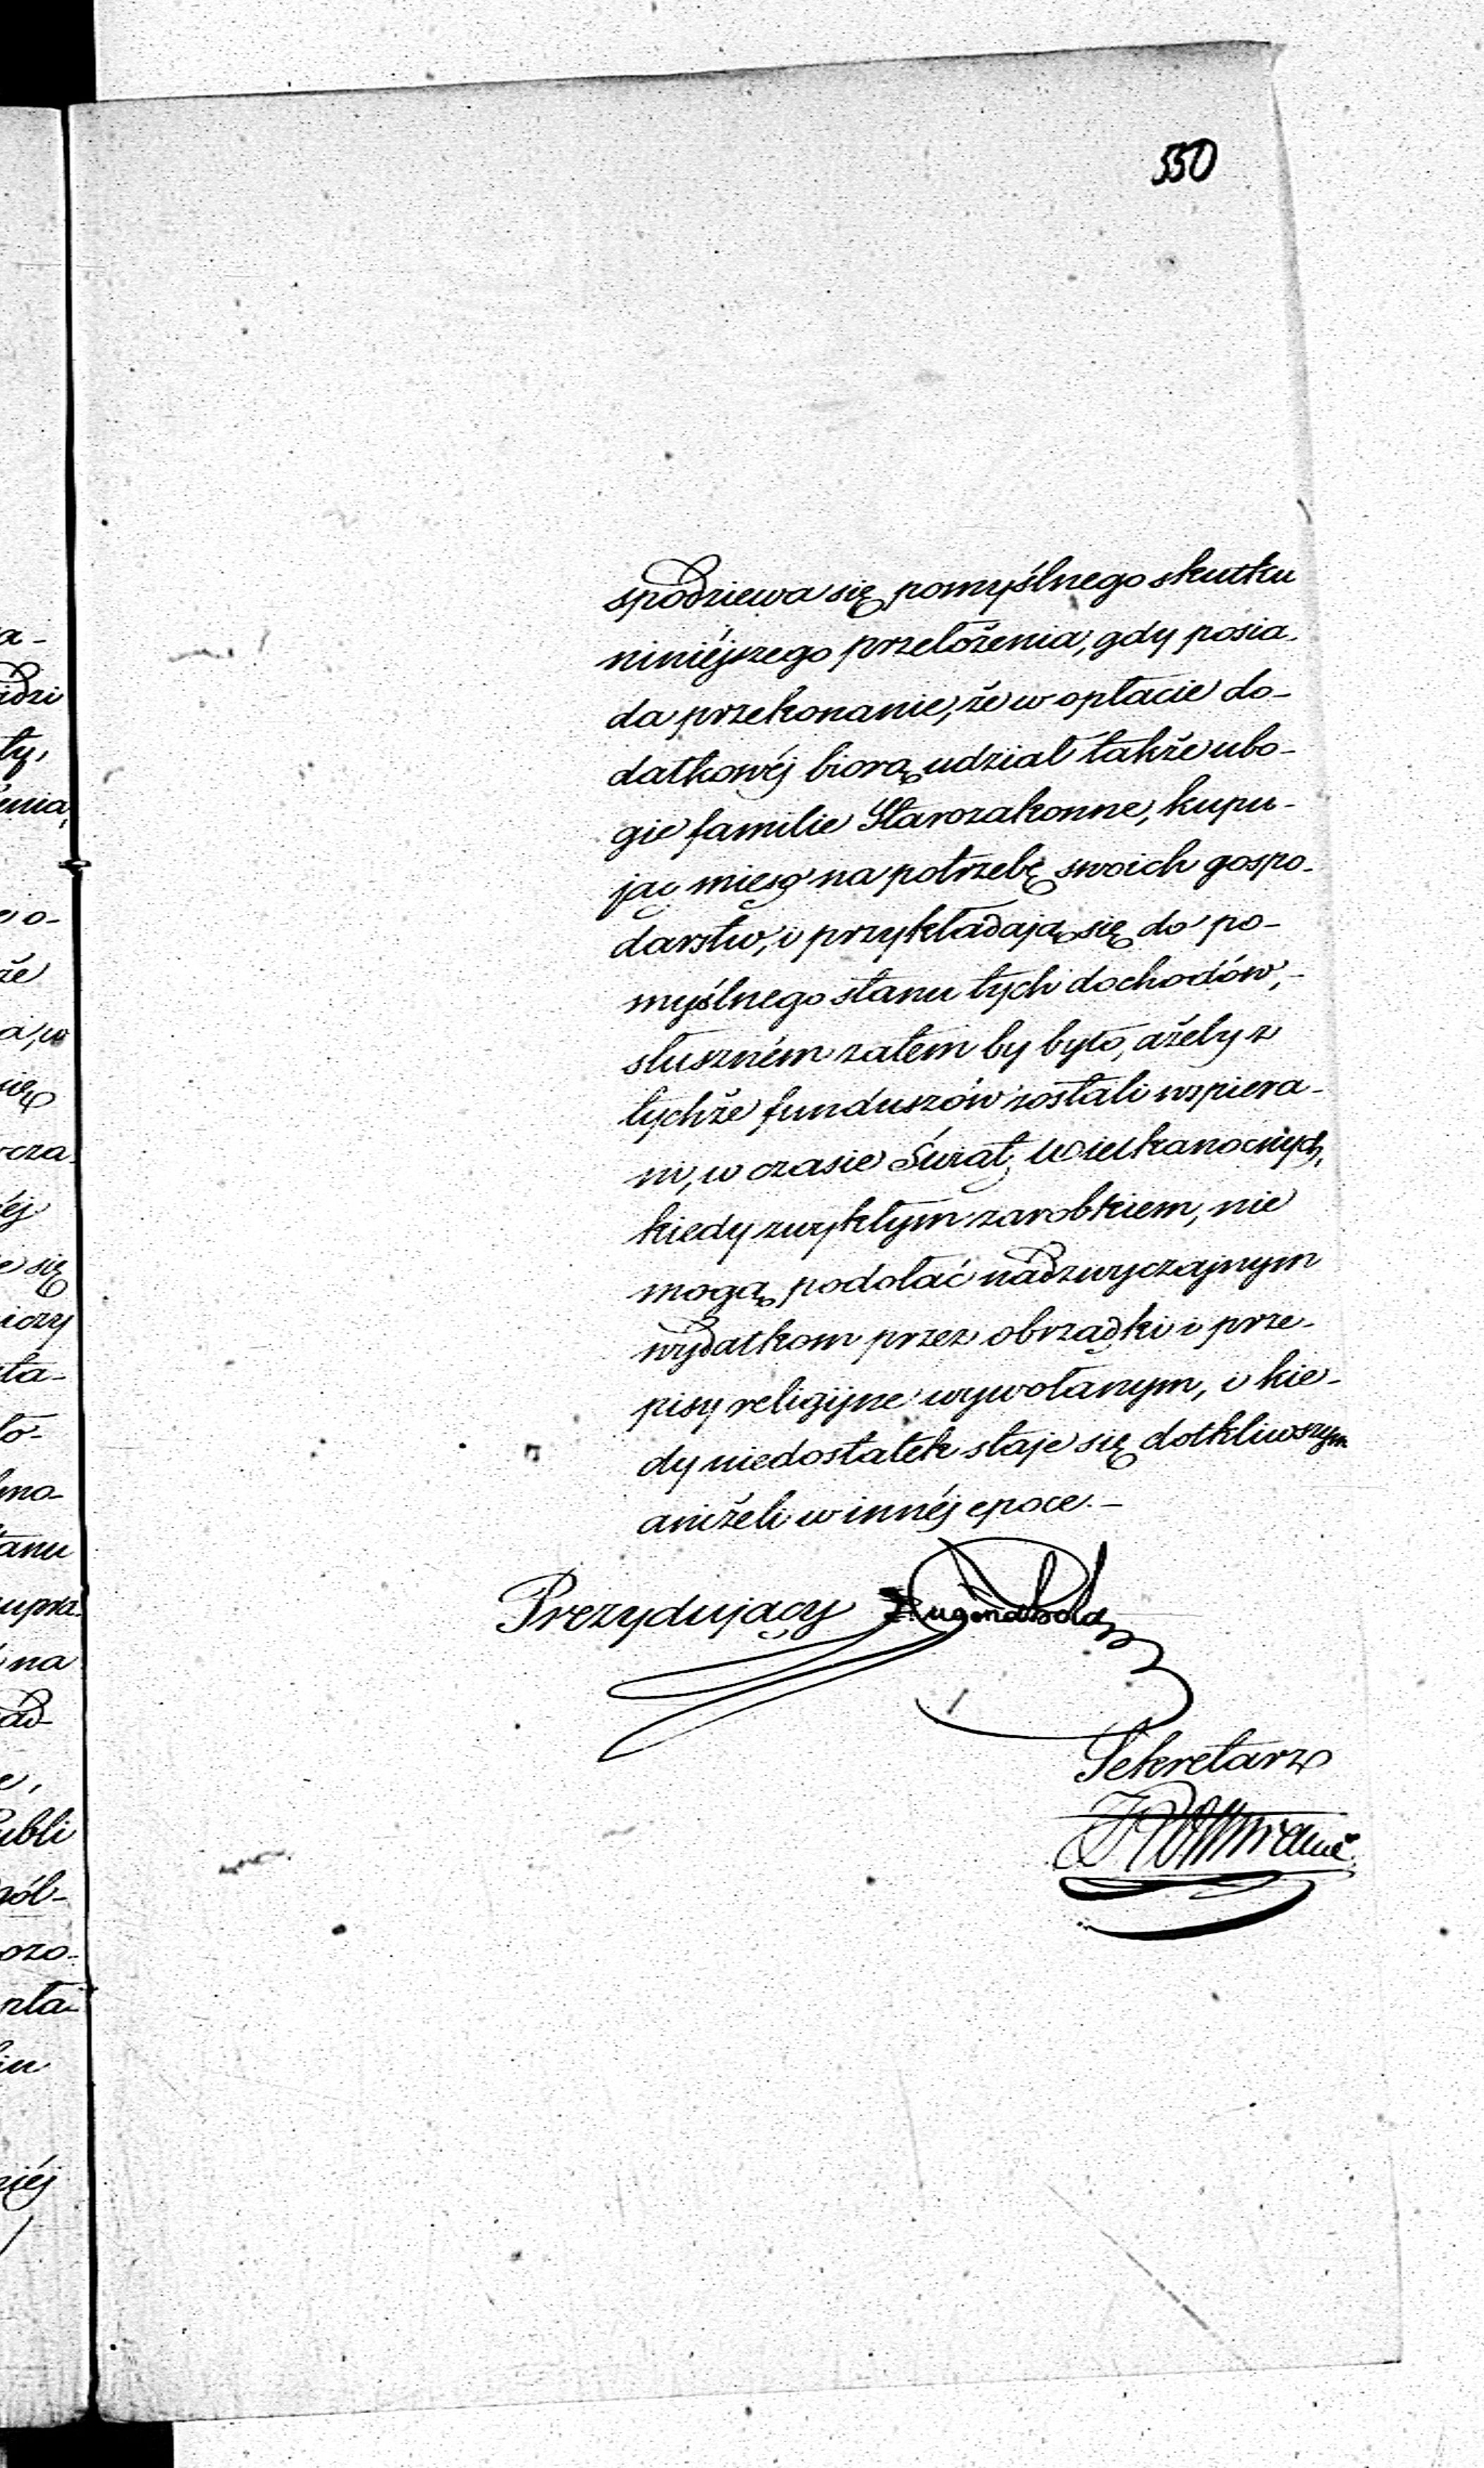 550
spodziewa się pomyślnego skutku
niniéjszego przełożenia, gdy posia-
da przekonanie, że w opłacie do-
datkowéj biorą udział także ubo-
gie familie Starozakonne, kupu-
jąc mięso na potrzebę swoich gospo-
darstw, i przykładają się do po-
myślnego stanu tych dochodów,-
słuszném zatem by było, ażeby z
tychże funduszów zostali wspiera-
ni, w czasie Świąt Wielkanocnych,
kiedy zwykłym zarobkiem, nie
mogą podołać nadzwyczajnym
wydatkom przez obrządki i prze-
pisy religijne wywołanym, i kie-
dy niedostatek staje się dotkliwszym
aniżeli w innéj epoce.-
Prezydujący
Sekretarz
a-
idzi
ty,
enia,
o-
że
a, w
się
cza
éj
się
iczy
ła-
ło-
mo-
anu
upra-
na
ad-
e,
ubli
gól-
ozo-
pła-
iu
niéj